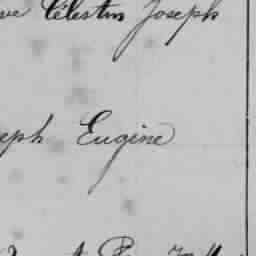 ve Célestin Joseph
eph Eugine